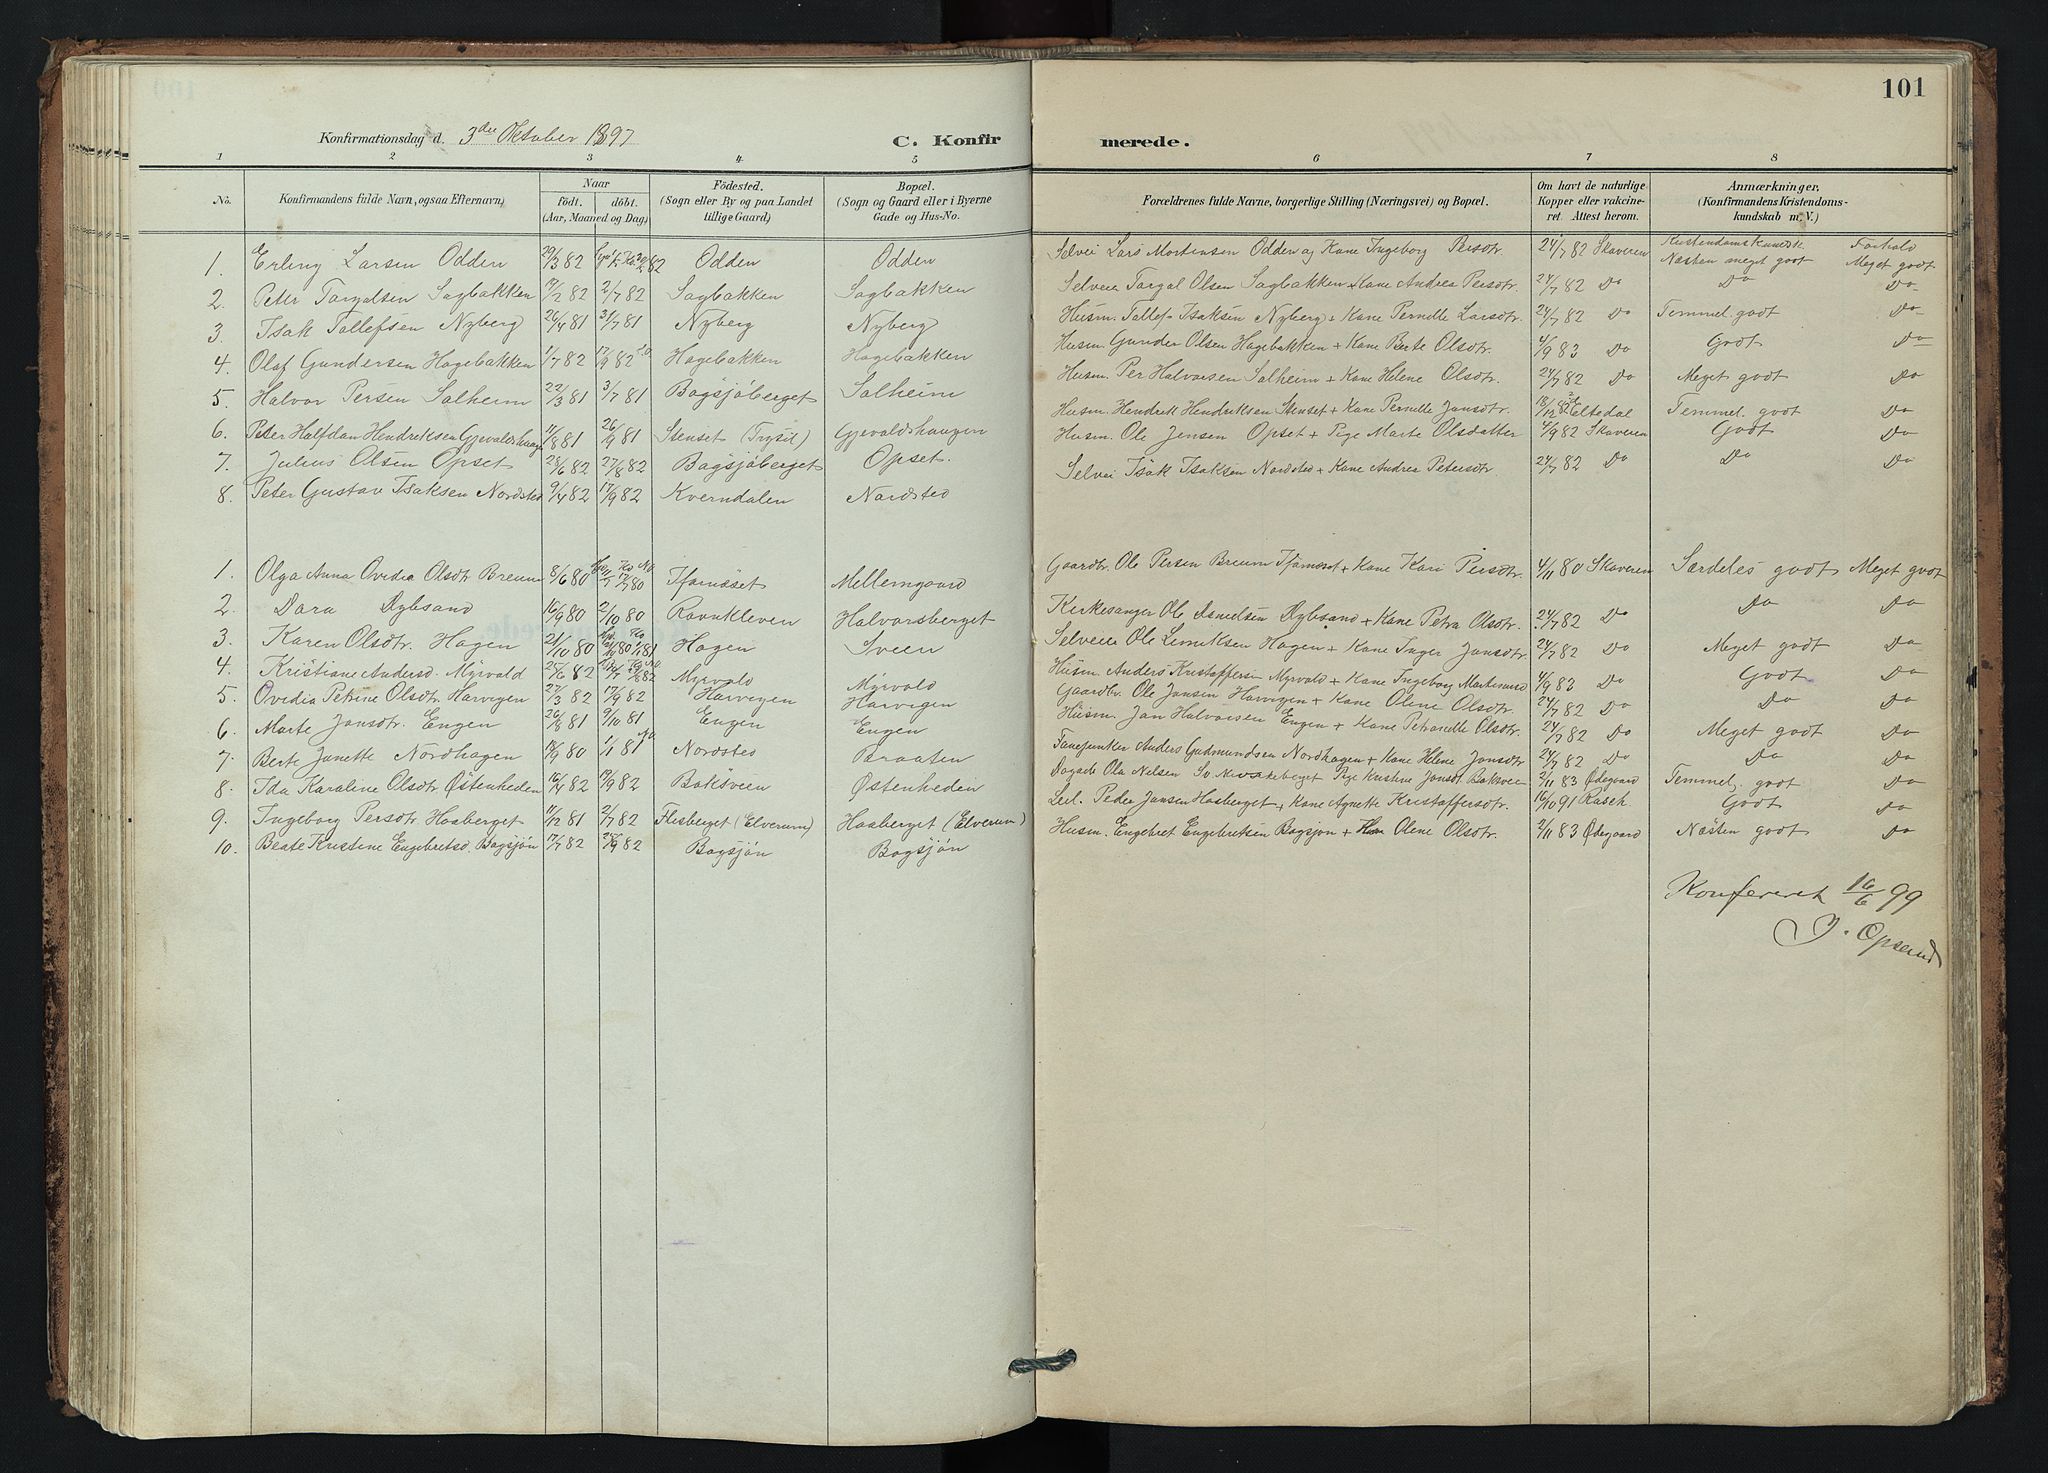 101
Konfirmationsdag d. 3die Oktober 1897
C. Konfirmerede.
1 2 3 4 5 6 7 8
No.
Konfirmandens fulde Navn, ogsaa Efternavn.
Naar
født. døbt.
(Aar, Maaned og Dag)
Fødested.
(Sogn eller By og paa Landet
tillige Gaard)
Bopæl.
(Sogn og Gaard eller i Byerne
Gade og Hus-No.
Forældrenes fulde Navne, borgerlige Stilling (Næringsvei) og Bopæl.
Om havt de naturlige
Kopper eller vakcine-
ret. Attest herom.
Anmærkninger.
(Konfirmandens Kristendoms-
kundskab m. V.)
Kristendomskundsk Forhold
1. Erling Larsen Odden 29/3 82 Odden Odden Selvei Lars Mortensen Odden og Kone Ingeborg Persdtr. 24/7 82 Skaveren Næsten meget godt Meget godt
2. Peter Torgalsen Sagbakken 17/2 82 2/7 82 Sagbakken Sagbakken Selveier Torgal Olsen Sagbakken + Kone Andrea Persdtr. 24/7 82 Do Do Do
3. Isak Tollefsen Nyberg 26/4 81 31/7 81 Nyberg Nyberg Husm. Tollef Isaksen Nyberg + Kone Pernelle Larsdtr. 24/7 82 Do Temmel. godt Do
4. Olaf Gundersen Hagebakken 1/7 82 17/9 82 Hagebakken Hagebakken Husm. Gunder Olsen Hagebakken + Kone Berte Olsdtr. 4/9 83 Do Godt Do
5. Halvor Persen Solheim 22/3 81 3/7 81 Bagsjøberget Solheim Husm. Per Halvorsen Solheim + Kone Helene Olsdtr. 24/7 82 Do Meget godt Do
6. Peter Halfdan Hendriksen Gjevaldshaugen 11/8 81 26/9 81 Stenset (Trysil) Gjevaldshaugen Husm. Hendrik Hendriksen Stenset + Kone Pernelle Jonsdtr. 18/12 Eltedal Temmel. godt Do
7. Julius Olsen Opset 28/6 82 27/8 82 Bagsjøberget Opset. Husm. Ole Jensen Opset + Pige Marte Olsdatter 4/9 82 Skaveren Godt Do
8. Peter Gustav Isaksen Nordsted 9/4 82 17/9 82 Kverndalen Nordsted Selvei Isak Isaksen Nordsted + Kone Andrea Petersdtr. 24/7 82 Do Do Do
1. Olga Anna Ovidia Olsdtr Breum 8/6 80 Mellemgaard Gaardbr. Ole Persen Breum + Kone Kari Persdtr. 4/11 80 Skaveren Særdeles godt Meget godt
2. Dora Rybsand 16/9 80 2/10 80 Ravnkleven Halvorsberget Kirkesanger Ole Rybsand + Kone Petra Olsdtr. 24/7 82 Do Do Do
3. Karen Olsdtr. Hagen 21/10 80 Hagen Sveen Selveier Ole Hagen + Kone Inger Jonsdtr. 24/7 82 Do Meget godt Do
4. Kristiane Andersd. Myrvold 25/6 82 Myrvold Myrvold Husm. Anders Kristoffersen Myrvold + Kone Ingeborg 4/9 83 Do Godt Do
5. Ovidia Petrine Olsdtr. Harvegen 27/3 82 17/9 82 Harvegen Harvegen Gaardbr. Ole Jonsen Harvegen + Kone Olene Olsdtr. 24/7 82 Do Do Do
6. Marte Jonsdtr. Engen 26/8 81 9/10 81 Engen Engen Husm. Jon Halvorsen Engen + Kone Petronelle Olsdtr. 24/7 82 Do Meget godt Do
7. Berte Janette Nordhagen 18/9 80 1/1 81 Nordsted Braaten Fanejunker Anders Gudmundsen Nordhagen + Kone Helene Jonsdtr 24/7 82 Do Do Do
8. Ida Karoline Olsdtr Østenheden 16/4 82 17/9 82 Baksveen Østenheden Ola Nilsen Pige Kristine Jonsdt. 2/11 83 Ødegaard Temmel. godt Do
9. Ingeborg Persdtr. Haaberget 11/12 81 2/7 82 Flisberget (Elverum) Haaberget (Elverum) Leil. Peder Jonsen Haaberget + Kone Agnette Kristoffersdtr. 16/10 91 Rasch. Godt Do
10. Beate Kristine Engebretsd. Bagsjøn 17/7 82 24/9 82 Bagsjøn Bagsjøn Husm. Engebret Engebretsen Bagsjøn + Olene Olsdtr. 2/11 83 Ødegaard Næsten godt Do
Konfereret 16/6 99
J. Opsund